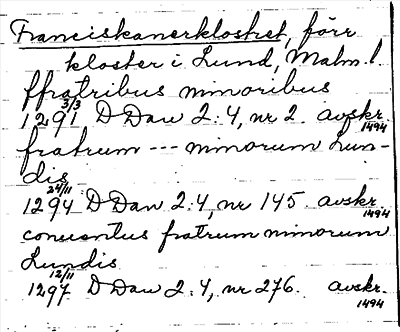 Franciskanerklostret, förr
kloster i Lund, Malm. l.
ffratribus minoribus
1291 3/3 D Dan 2:4, nr 2. avskr. 1494
fratrum --- minorum Lun-
dis
1294 24/11 D Dan 2:4, nr 145. avskr. 1494
conuentus fratrum minorum
Lundis
1297 12/11 D Dan 2:4, nr 276. avskr. 1494